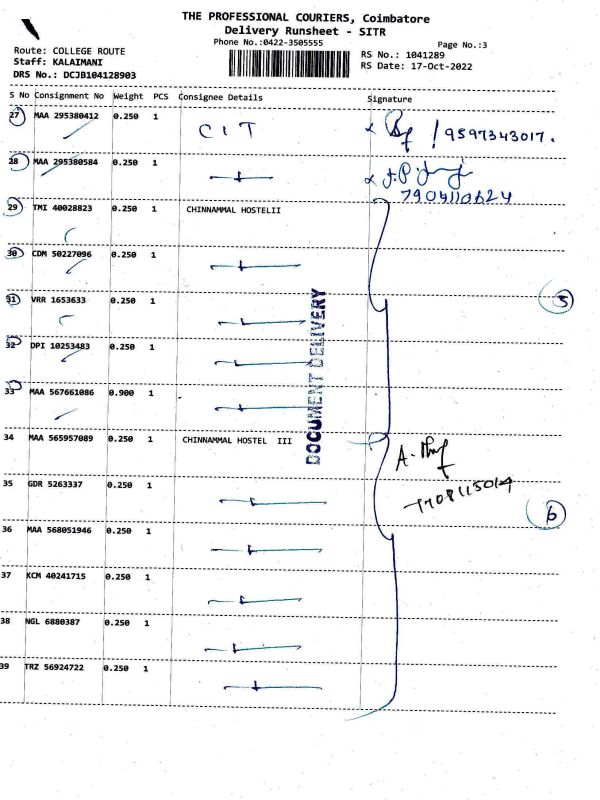 THE PROFESSIONAL COURIERS, Coimbatore
Delivery Runsheet - SITR
Phone No.:0422-3505555
Page No.:3
Route: COLLEGE ROUTE
RS No.: 1041289
Staff: KALAIMANI
RS Date: 17-Oct-2022
DRS No.: DCJB104128903
S No Consignment No Weight PCS Consignee Details Signature
27 MAA 295380412 0.250 1 CIT 9597343017.
28 MAA 295380584 0.250 1
7904110624
29 TMI 40028823 0.250 1 CHINNAMMAL HOSTELII
30 CDM 50227096 0.250 1
5
31 VRR 1653633 0.250 1
32 DPI 10253483 0.250 1
33 MAA 567661086 0.900 1
DOCUMENT DELIVERY
34 MAA 565957089 0.250 1 CHINNAMMAL HOSTEL III
35 GDR 5263337 0.250 1
6
36 MAA 568051946 0.250 1
37 KCM 40241715 0.250 1
38 NGL 6880387 0.250 1
39 TRZ 56924722 0.250 1